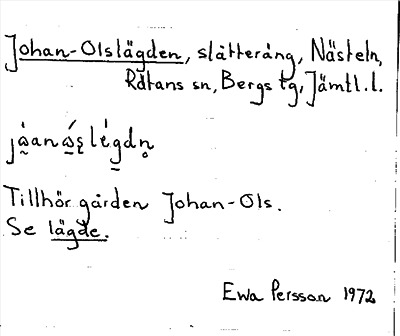 Johan-Olslägden, slåtteräng, Nästeln,
Rätans sn, Bergs tg, Jämtl. l.
Tillhör gården Johan-Ols.
Se lägde.
Ewa Persson 1972